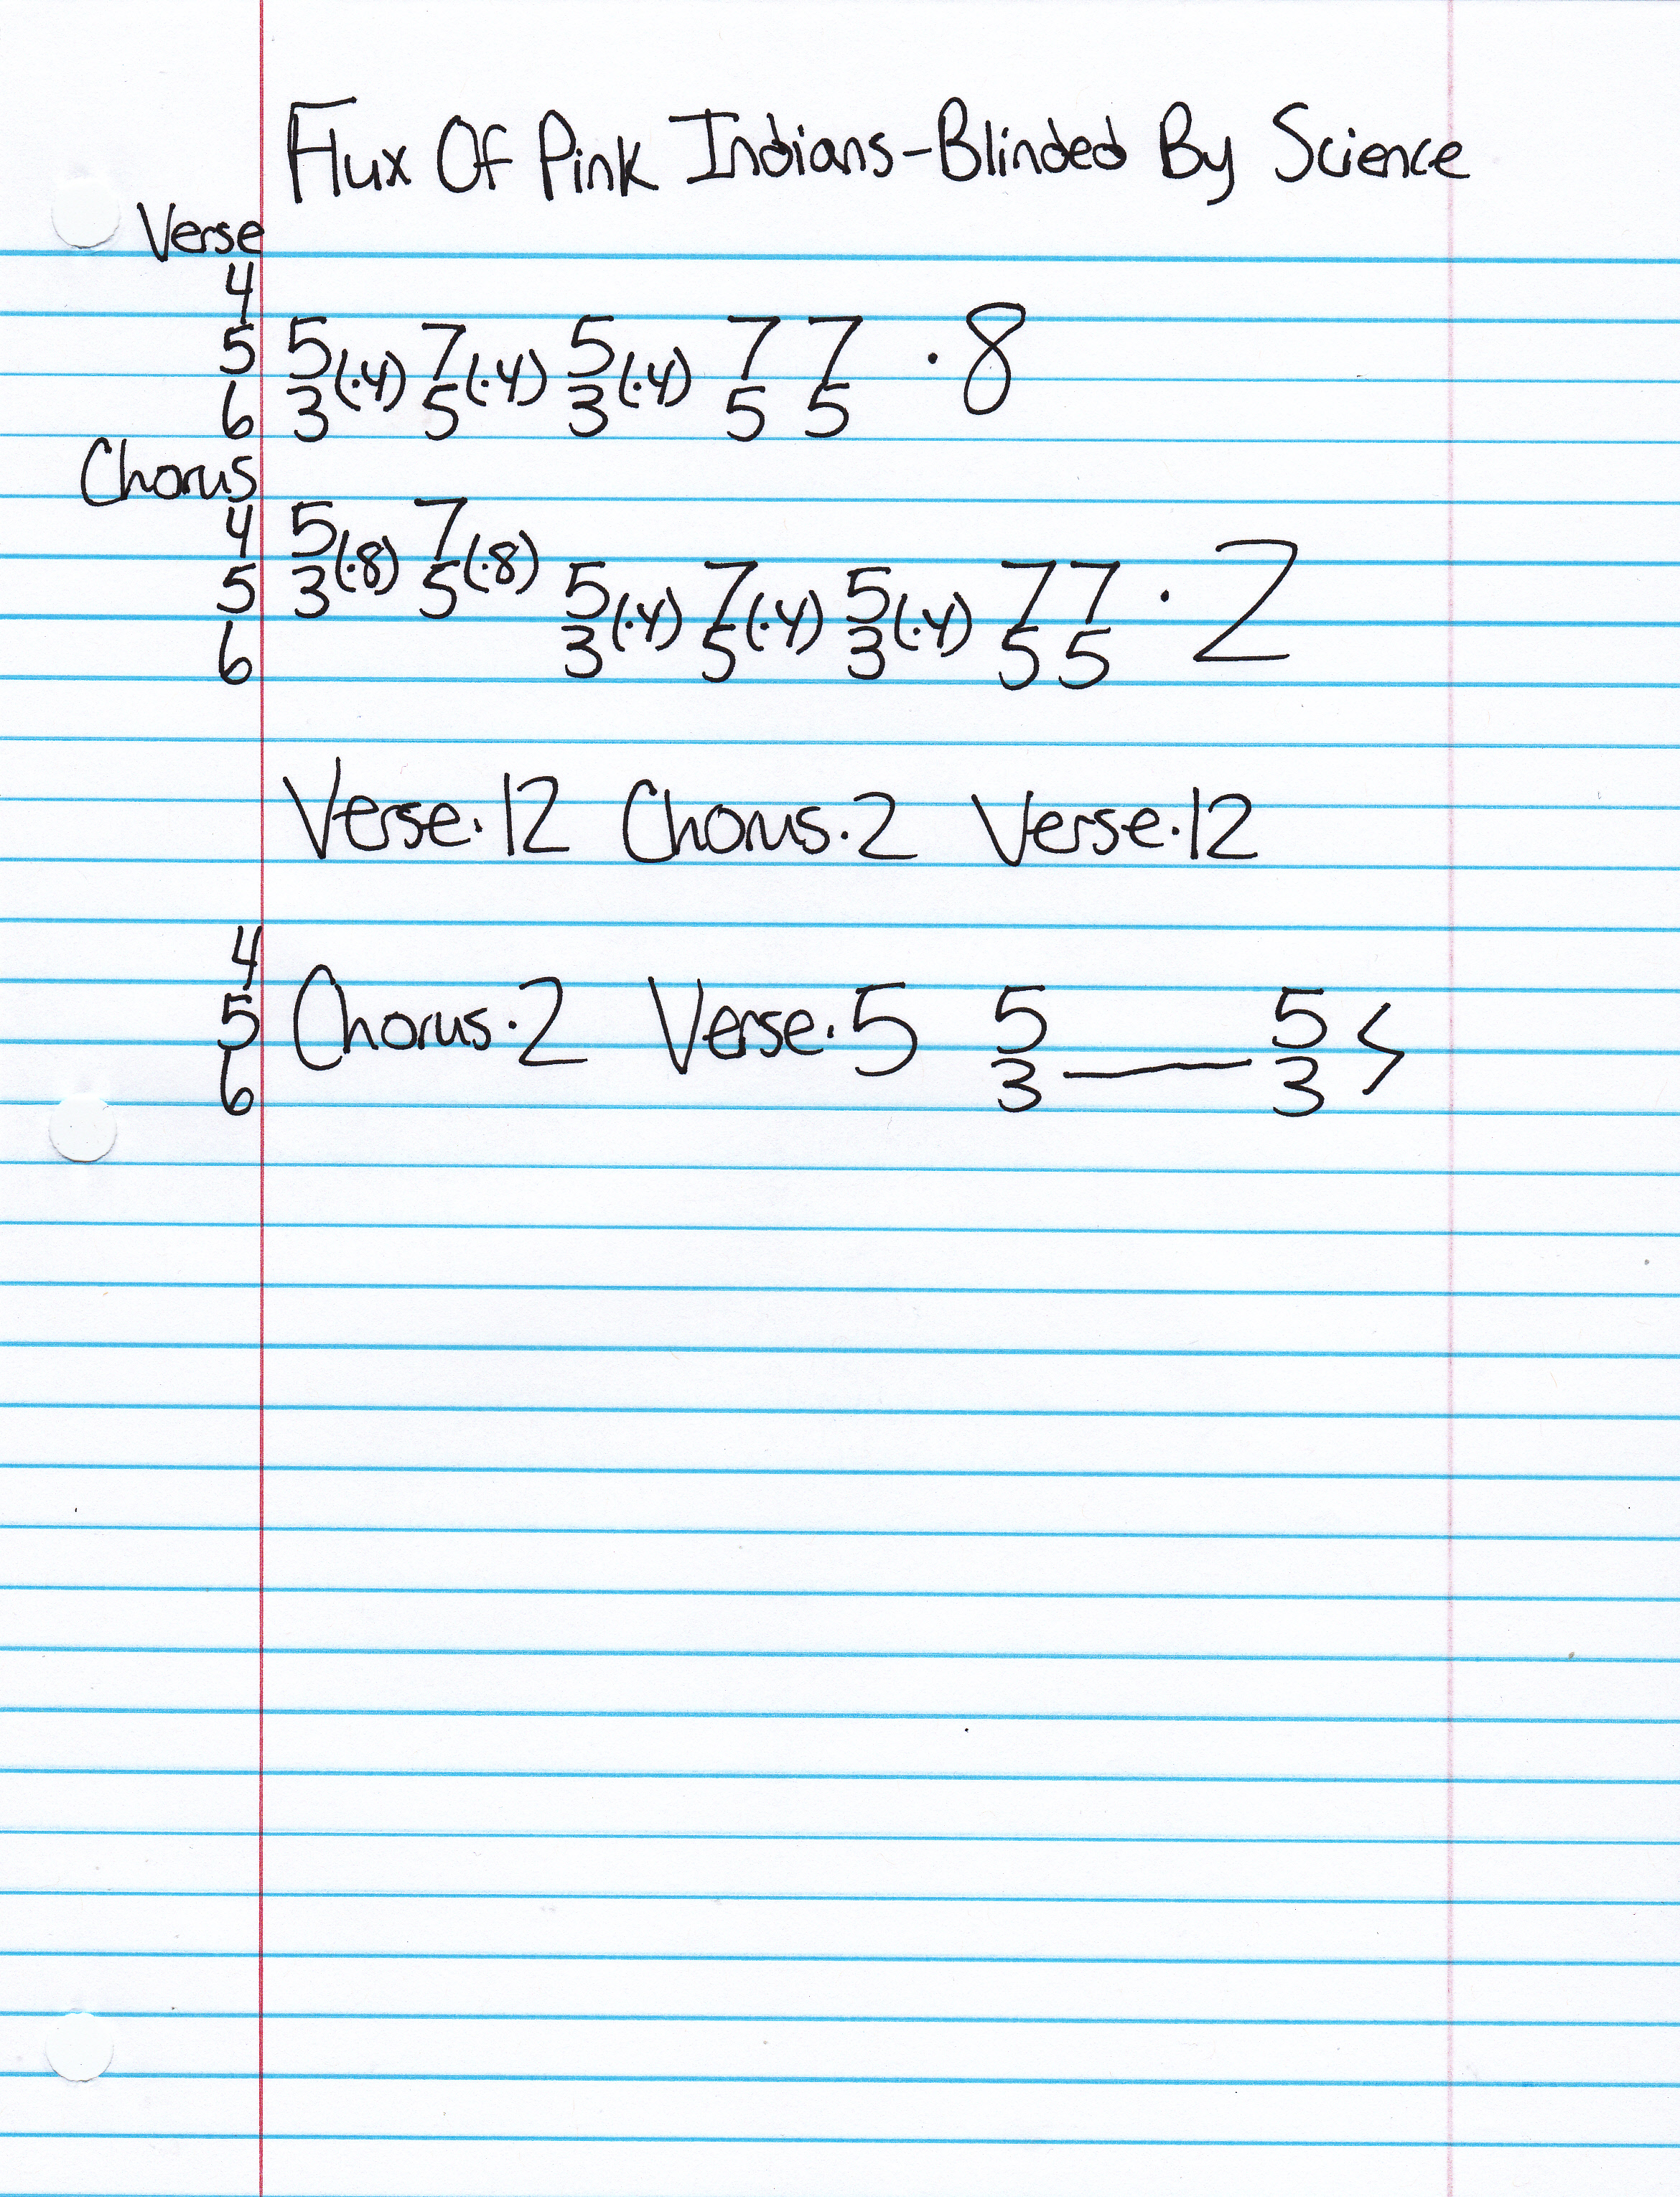 Flux Of Pink Indians-Blinded By Science
Verse
4
5 5 (·4) 7 (·4) 5 (·4) 7 7 ·8
6 3 5 3 5 5
Chorus
4 5 (·8) 7 (·8)
5 3 5 5 (·4) 7 (·4) 5 (·4) 7 7 ·2
6 3 5 3 5 5
Verse·12 Chorus·2 Verse·12
4
5 Chorus·2 Verse·5 5 5
6 3 3